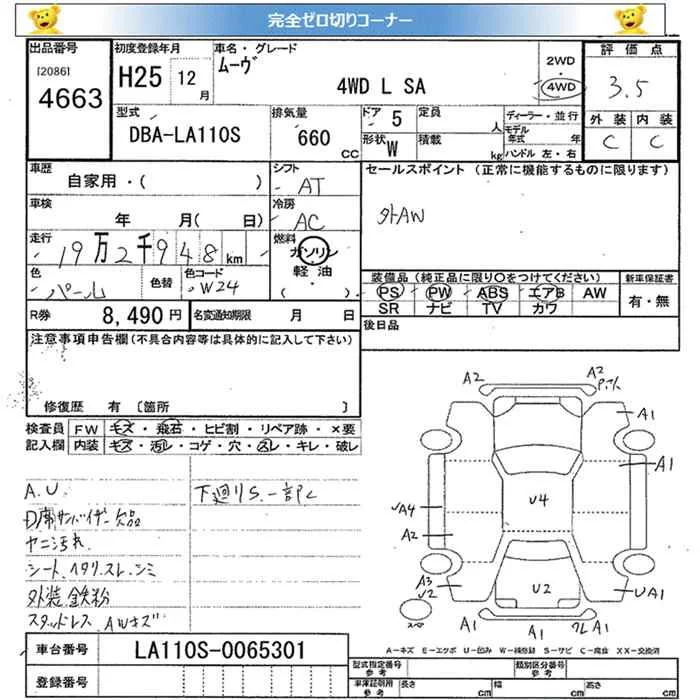 完全ゼロ切りコーナー
出品番号
[2086]
4663
初度登録年月
H25 12月
車名・グレード
ムーヴ
4WD L SA
2WD
・
4WD
評価点
3.5
外装 内装
C C
型式
DBA-LA110S
排気量
660 CC
ドア 5
形状 W
定員 人
積載 kg
ディーラー・並行
モデル年式 年
ハンドル 左・右
車歴
自家用・( )
シフト
AT
セールスポイント (正常に機能するものに限ります)
外AW
車検
年 月( 日)
冷房
AC
走行
19万2千948km
燃料
ガソリン
軽油
( )
色
パール
色替
色コード
W24
装備品(純正品に限り○をつけてください)
PS PW ABS エアB AW
SR ナビ TV カワ
新車保証書
有・無
R券 8,490円
名変通知期限 月 日
後日品
注意事項申告欄(不具合内容等は具体的に記入して下さい)
修復歴 有 〔箇所 〕
検査員記入欄
FW キズ・飛石・ヒビ割・リペア跡・×要
内装 キズ・汚レ・コゲ・穴・スレ・キレ・破レ
A.U.
D席サンバイザー欠品
ヤニ汚れ
シート.ヘタリ.スレ.シミ
外装.鉄粉
スタッドレス AWキズ
下廻りS.一部C
A2
A2
P.T.
A1
A1
U4
A2
A3
U2
U2
UA1
スペ
A1
A1
A1
A-キズ E-エクボ U-凹み W-補修跡 S-サビ C-腐食 XX-交換済
車台番号 LA110S-0065301
登録番号
型式指定番号 参考
類別区分番号 参考
車庫証明用 参考
長さ cm
幅 cm
高さ cm